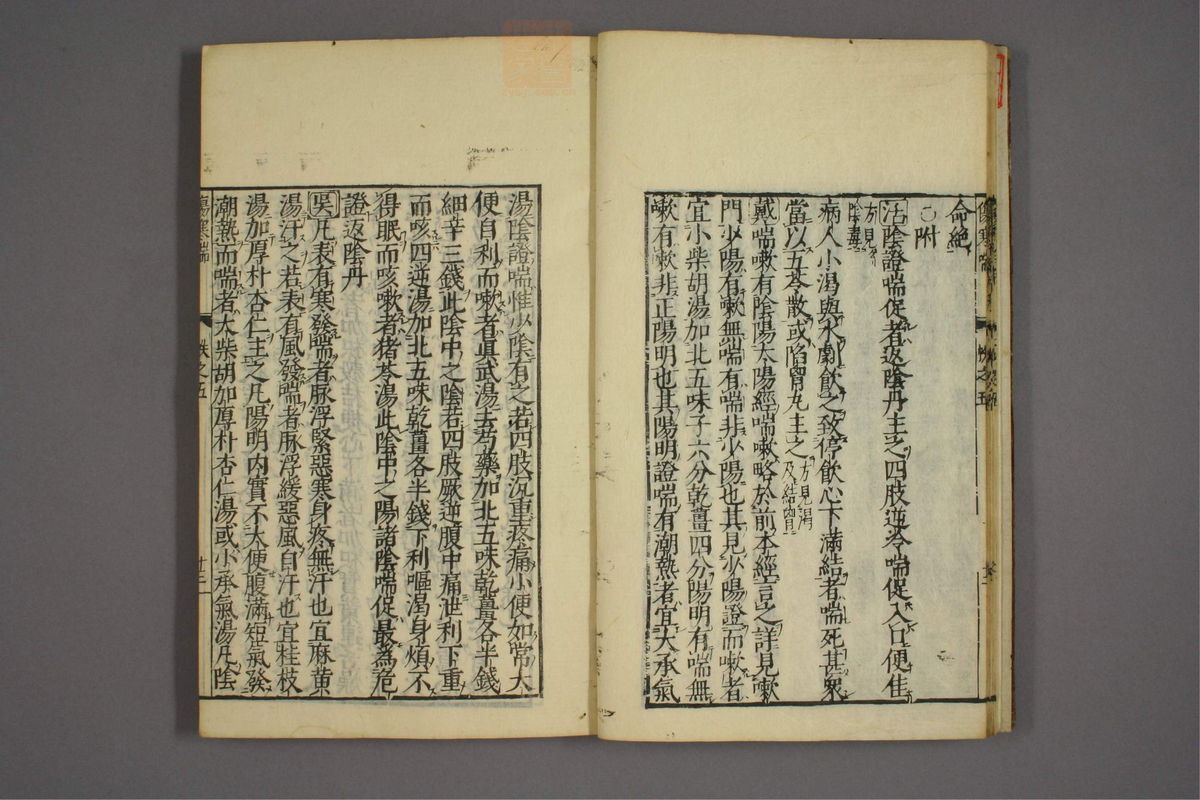 命絕
○附
活陰證喘促者返陰丹主之四肢逆冷喘促入口便住
方見陰毒
病人小渴與水劇飲之致停飲心下滿結者喘死甚衆
當以五苓散或陷胷丸主之方見渴及結胷
戴喘嗽有陰陽太陽經喘嗽略於前本經言之詳見嗽
門少陽有嗽無喘有喘非少陽也其見少陽證而嗽者
宜小柴胡湯加北五味子六分乾薑四分陽明有喘無
嗽有嗽非正陽明也其陽明證喘有潮熱者宜大承氣
湯陰證喘惟少陰有之若四肢沉重疼痛小便如常大
便自利而嗽者眞武湯去芍藥加北五味乾薑各半錢
細辛三錢此陰中之陰若四肢厥逆腹中痛泄利下重
而咳四逆湯加北五味乾薑各半錢下利嘔渴身煩不
得眠而咳嗽者猪苓湯此陰中之陽諸陰喘促最為危
證返陰丹
吴凡表有寒發喘者脉浮緊惡寒身疼無汗也宜麻黄
湯汗之若表有風發喘者脉浮緩惡風自汗也宜桂枝
湯加厚朴杏仁主之凡陽明内實不大便腹滿短氣發
潮熱而喘者大柴胡加厚朴杏仁湯或小承氣湯凡陰
傷寒喘
帙之五
十二